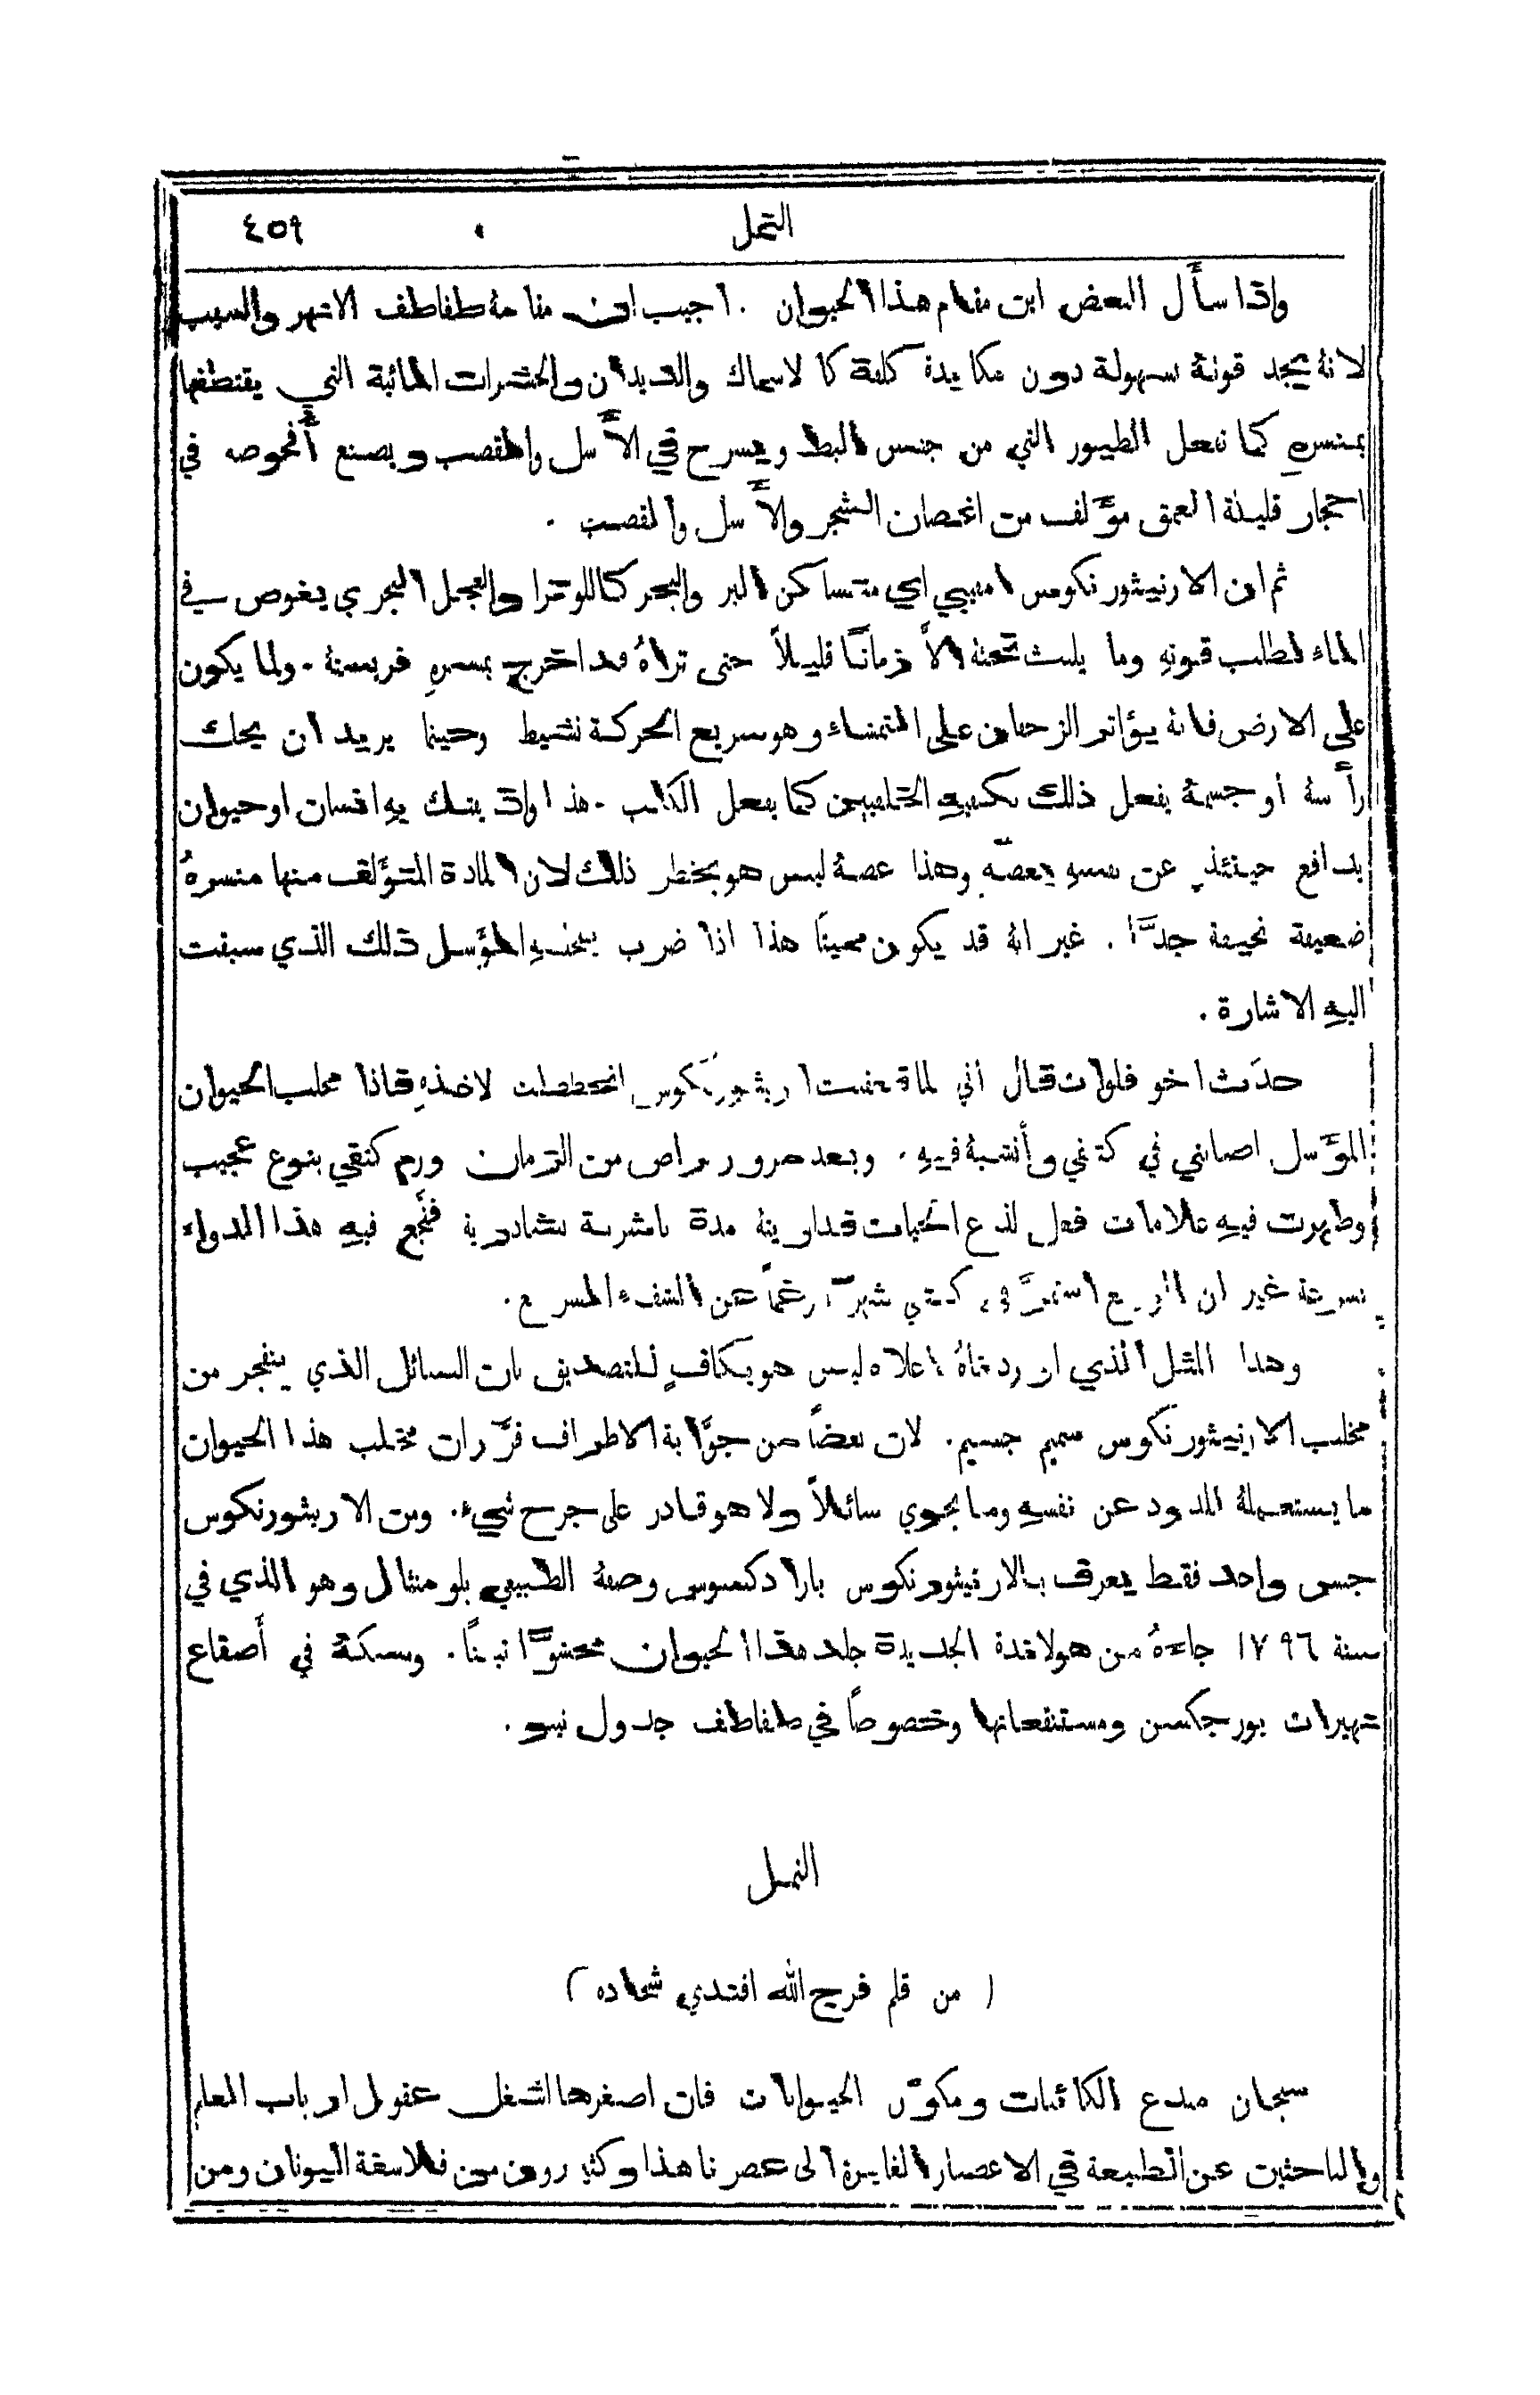 النمل ٤٥٩
واذا سأَل البعض اين مقام هذا الحيوان . اجيب ان مقامهُ طفاطف الانهر والسبب
لانهُ يجد قوتهُ بسهولة دون مكايدة كلفة كالاسماك والديدان والحشرات المائية التي يقتطفها
بمنسرهِ كما تفعل الطيور التي من جنس البط ويسرح في الأَسل والقصب ويصنع أُفحوصه في
احجار قليلة العمق مؤَلف من اغصان الشجر والأَسل والقصب .
ثم ان الارنيثورنكوس امفيبي اي متساكن البر والبحر كاللوترا والعجل البحري يغوص في
الماء لطلب قوتهِ وما يلبث تحتهُ الاَّ زمانًا قليلاً حتى تراهُ قد اخرج بمنسرهِ فريستهُ . ولما يكون
على الارض فانهُ يؤاثر الزحفان على التمشاء وهو سريع الحركة نشيط وحينما يريد ان يحك
رأْسهُ او جسمهُ يفعل ذلك بكفيهِ الخلفيين كما يفعل الكلب . هذا واذ يفتك بهِ انسان او حيوان
يدافع حينئذٍ عن نفسهِ بعضّهِ وهذا عضهُ ليس هو بخطر ذلك لان المادة المتؤَلف منها منسرهُ
ضعيفة نحيفة جدًّا . غير انهُ قد يكون مميتًا هذا اذا ضرب بمخلبهِ المؤسل ذلك الذي سبقت
اليهِ الاشارة .
حدَّث اخو فلوان قال اني لما قنصت ارنيثورنكوس انحططت لاخذهِ فاذا مخلب الحيوان
المؤَسل اصابني في كتفي وأنشبهُ فيهِ . وبعد مرور براض من الزمان ورم كتفي بنوع عجيب
وظهرت فيهِ علامات فعل لذع الحيات فداويتهُ مدة باشربة نشادرية فنجَع فيهِ هذا الدواء
بسرعة غير ان الوجع استمرَّ في كتفي شهرًا رغمًا عن الشفاء المسرع .
وهذا المثل الذي اوردناهُ اعلاه ليس هو بكافٍ للتصديق بان السائل الذي ينفجر من
مخلب الارنيثورنكوس سميم جسيم . لان بعضًا من جوَّابة الاطراف قرَّر ان مخلب هذا الحيوان
ما يستعملهُ للذود عن نفسهِ وما يحوي سائلاً ولا هو قادر على جرح شيء . ومن الارنيثورنكوس
جنس واحد فقط يعرف بالارنيثورنكوس بارادكسوس وصفهُ الطبيعي بلومنثال وهو الذي في
سنة ١٧٩٦ جاءهُ من هولاندة الجديدة جلد هذا الحيوان محشوًّا تبنًا . ومسكنهُ في أَصقاع
نهيرات بورجكسن ومستنقعاتها وخصوصًا في طفاطف جدول نبو .
النمل
( من قلم فرج الله افندي شحاده )
سبحان مبدع الكائنات ومكوّن الحيوانات فان اصغرها اشغل عقول ارباب العلم
والباحثين عن الطبيعة في الاعصار الغابرة الى عصرنا هذا وكثيرون من فلاسفة اليونان ومن